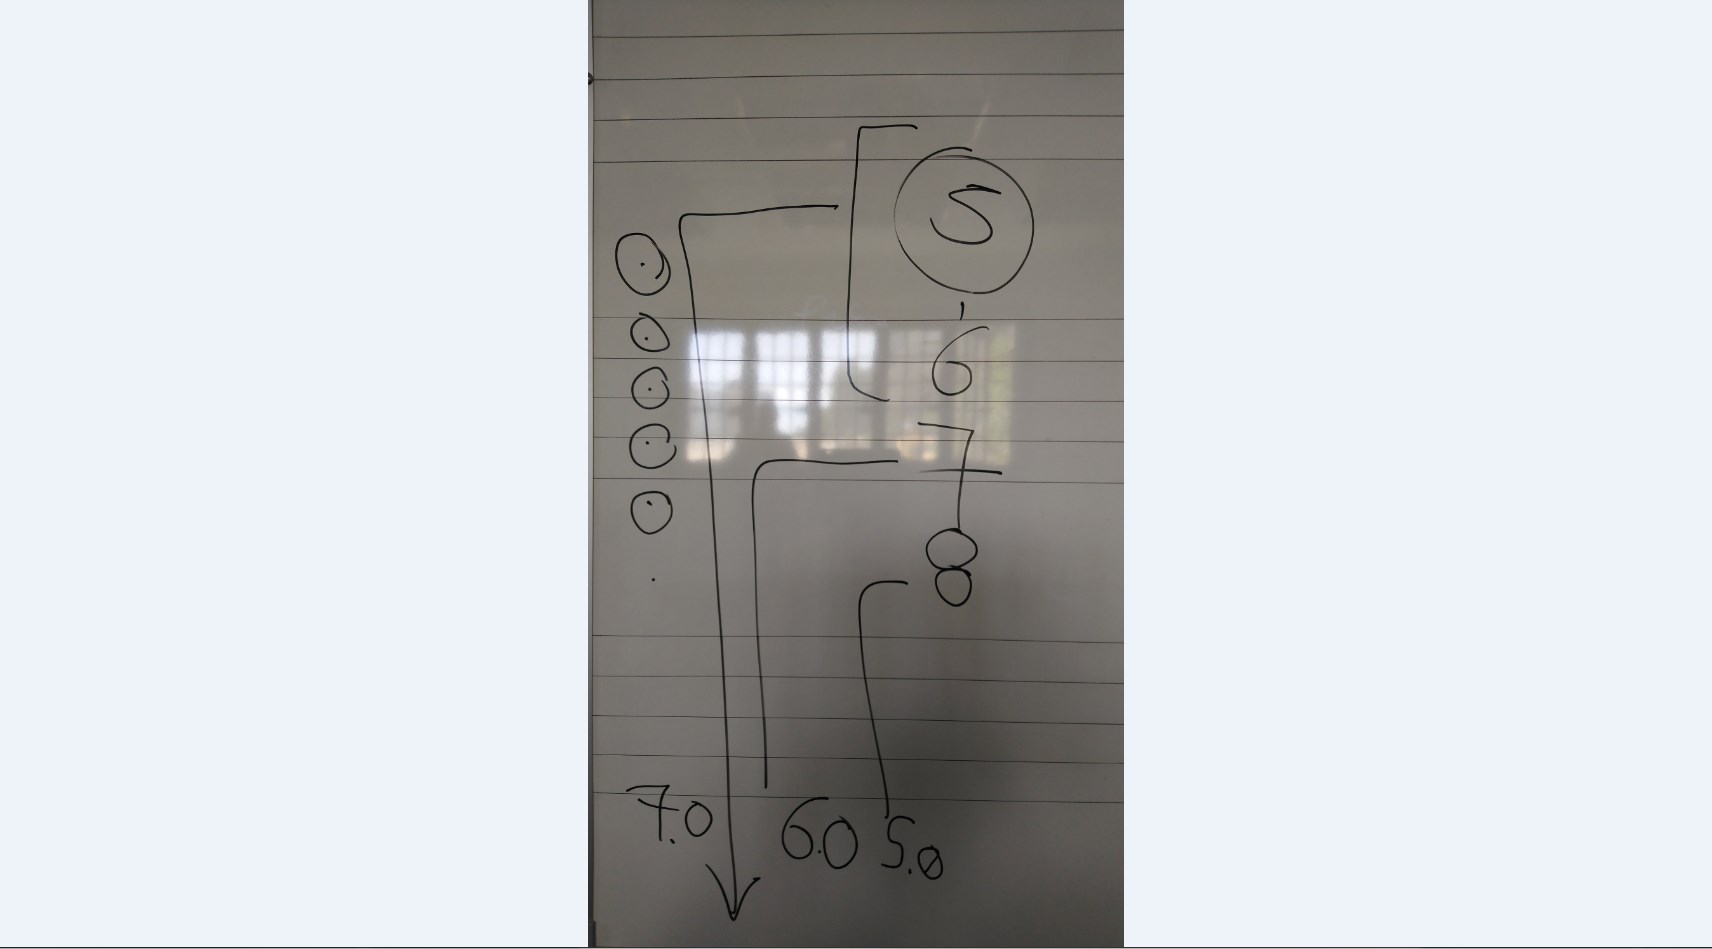 5
6
7
8
7.0 6.0 5.0